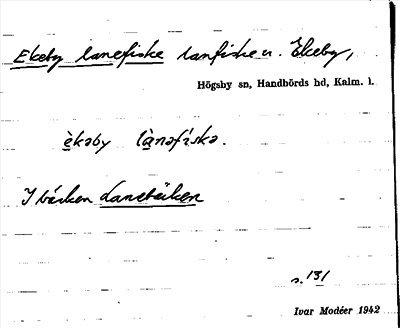 Ekeby lanefiske lanfiske u. Ekeby,
Högsby sn, Handbörds hd, Kalm. l.
èkəby lànəfiskə.
I bäcken Lanebäcken
s. 131
Ivar Modéer 1942